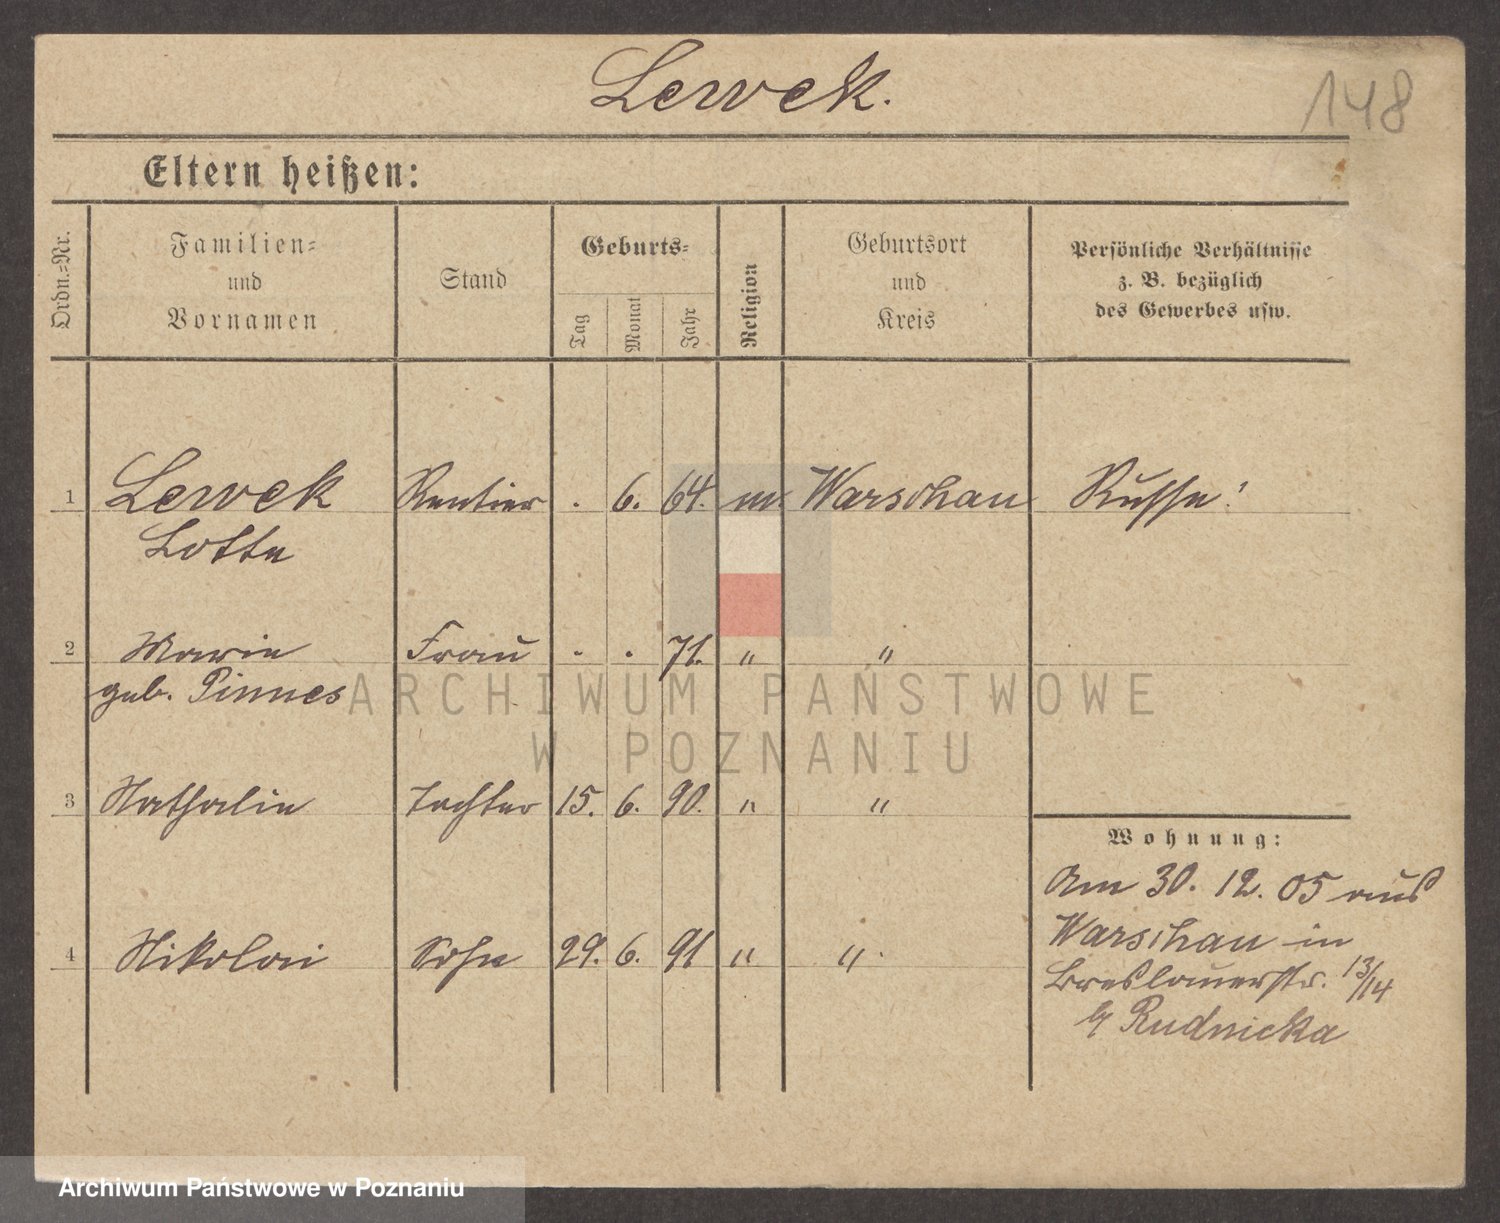 Lewek.
148
Eltern heißen:
Ordn.=Nr.
Familien=
und
Vornamen
Stand
Geburts=
Tag
Monat
Jahr
Religion
Geburtsort
und
Kreis
Persönliche Verhältnisse
z. B. bezüglich
des Gewerbes usw.
1 Lewek Rentier . 6. 64. m. Warschau Russe!
Lotte
2 Marie Frau . . 71. " "
geb. Pinnes
3 Nathalie Tochter 15. 6. 90. " "
Wohnung:
Am 30. 12. 05 aus
4 Nikolai Sohn 29. 6. 91 " "
Warschau in
Breslauerstr. 13/14
b/ Rudnicka
ARCHIWUM PAŃSTWOWE
W POZNANIU
Archiwum Państwowe w Poznaniu